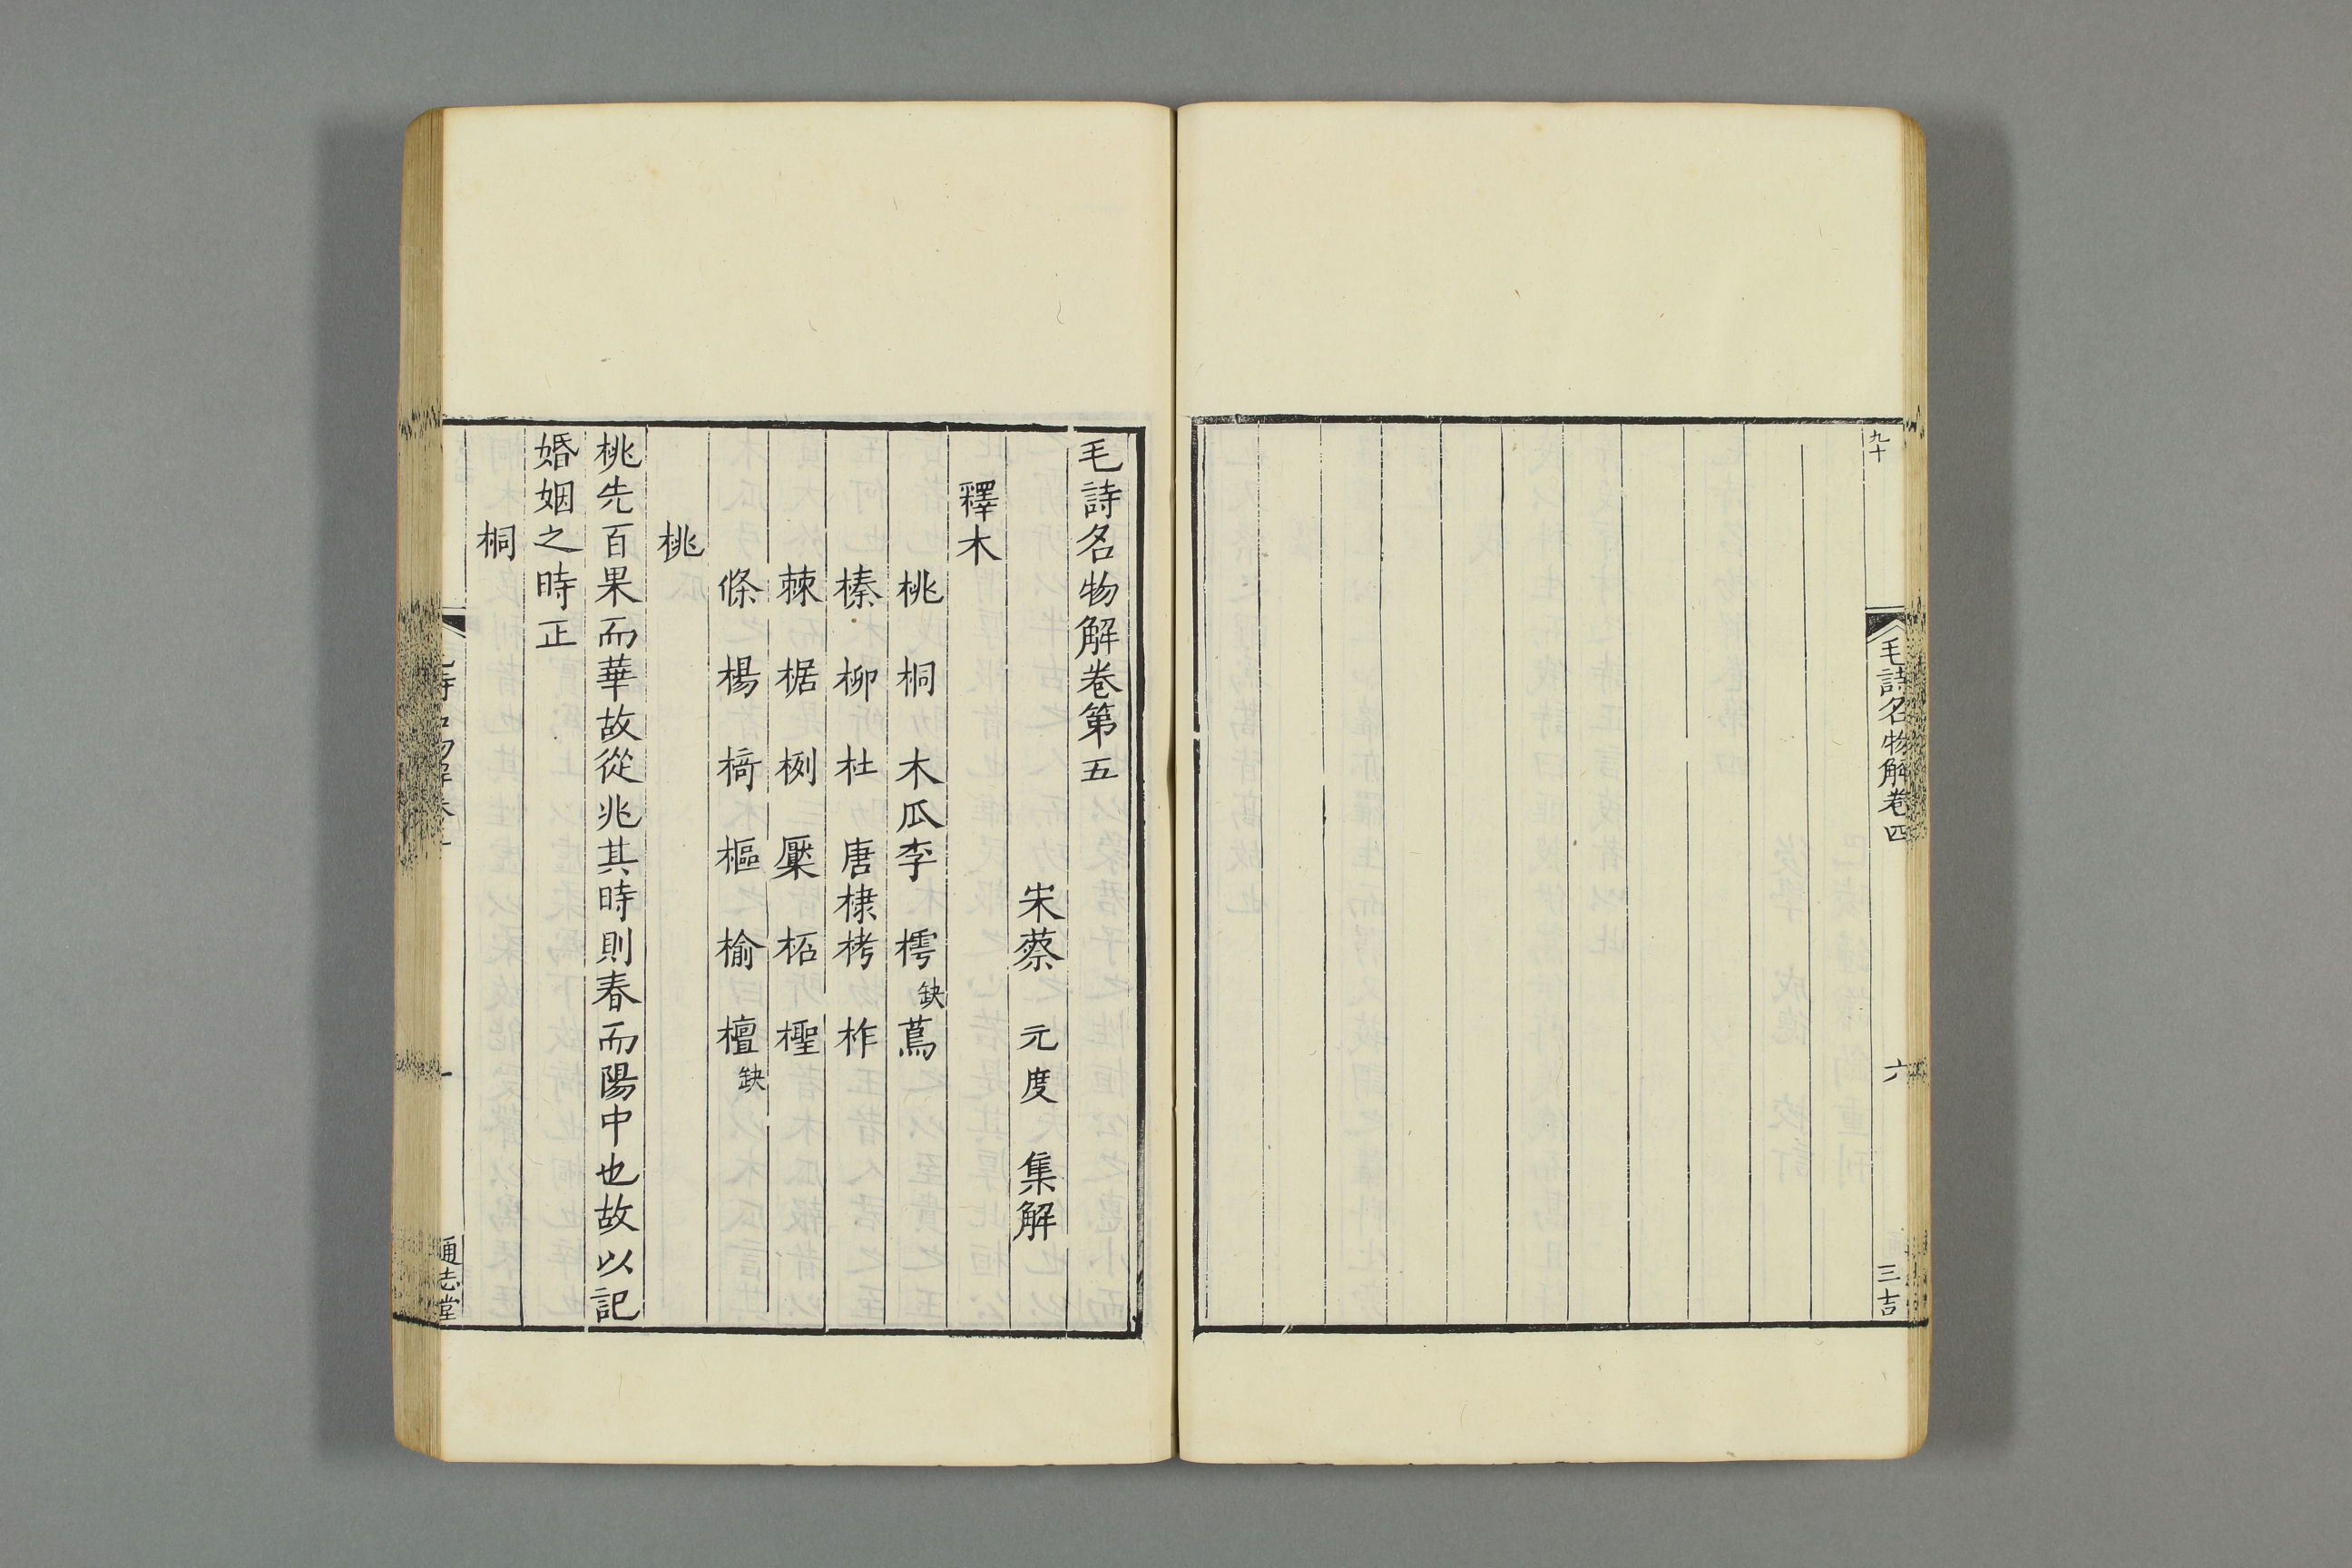 九十
毛詩名物解卷四
六
三吉
毛詩名物解卷第五
宋蔡 元度 集解
釋木
桃 桐 木瓜李 樗缺蔦
榛 柳 杜 唐棣栲 柞
棘 椐 栵 檿 柘 檉
條 楊 椅 樞 榆 檀缺
桃
桃先百果而華故從兆其時則春而陽中也故以記
婚姻之時正
桐
一
通志堂